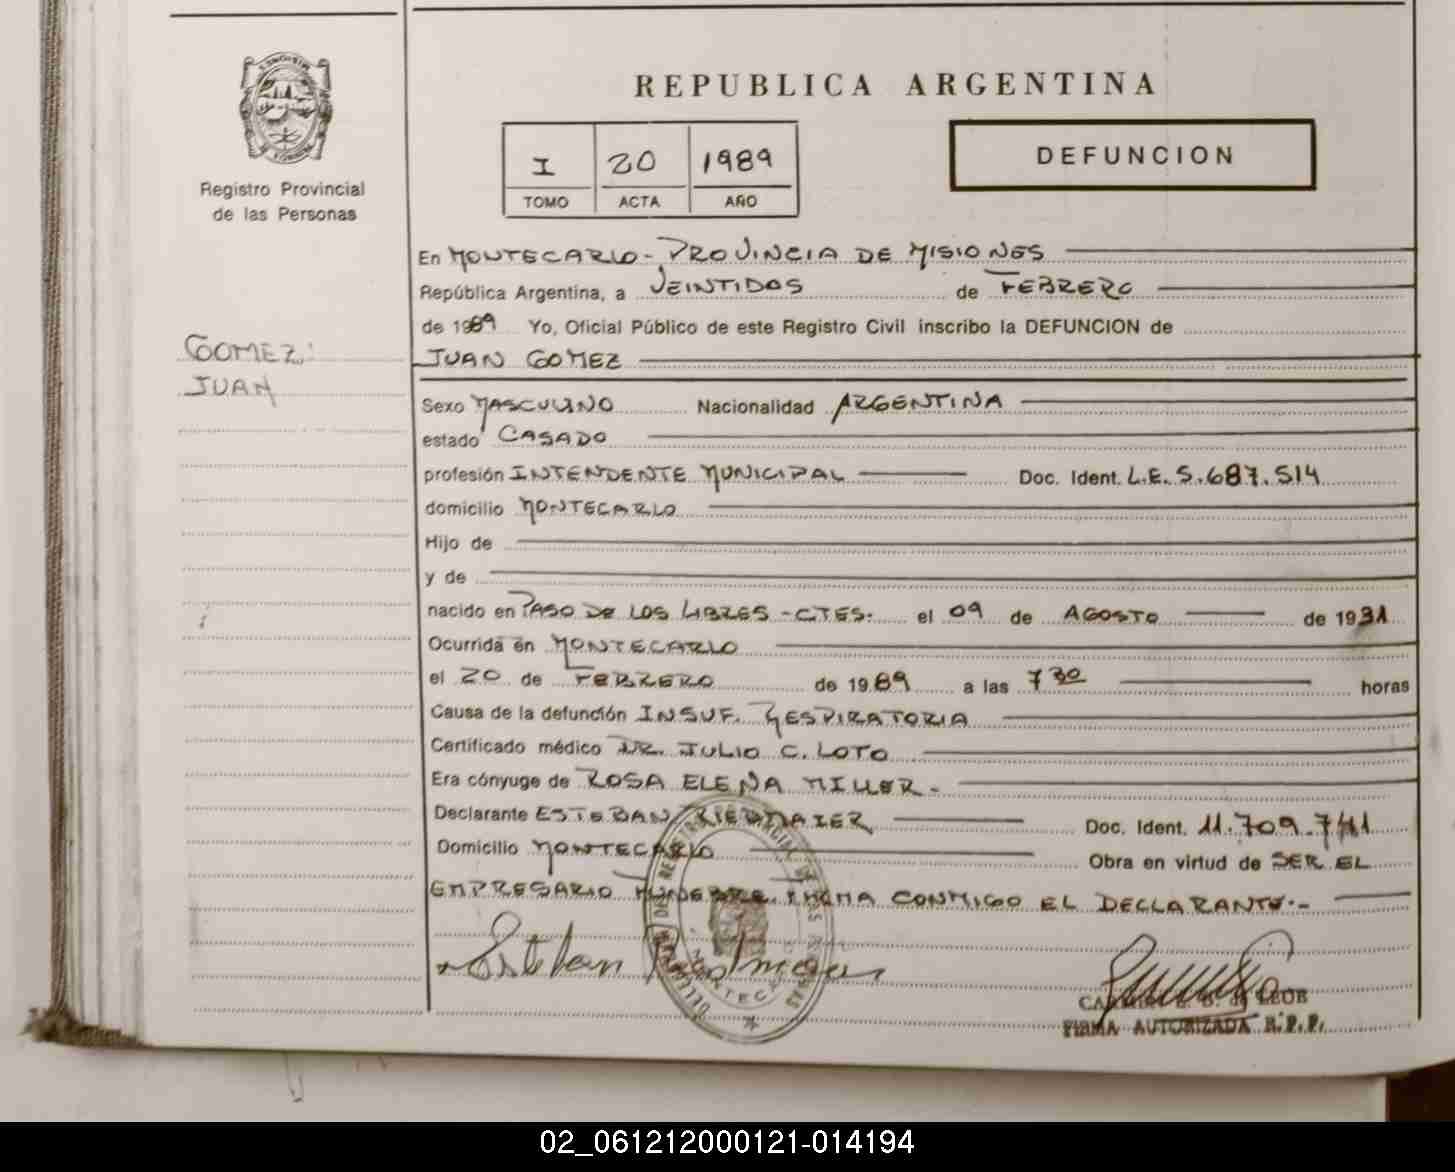 REPUBLICA ARGENTINA
I 20 1989
TOMO ACTA AÑO
DEFUNCION
Registro Provincial
de las Personas
GOMEZ:
JUAN
En MONTECARLO - PROVINCIA DE MISIONES
República Argentina, a VEINTIDOS de FEBRERO
de 1989 Yo, Oficial Público de este Registro Civil inscribo la DEFUNCION de
JUAN GOMEZ
Sexo MASCULINO Nacionalidad ARGENTINA
estado CASADO
profesión INTENDENTE MUNICIPAL Doc. Ident. L.E. 5.687.514
domicilio MONTECARLO
Hijo de
y de
nacido en PASO DE LOS LIBRES - CTES. el 09 de AGOSTO de 1931
Ocurrida en MONTECARLO
el 20 de FEBRERO de 1989 a las 7 30 horas
Causa de la defunción INSUF. RESPIRATORIA
Certificado médico DR. JULIO C. LOTO
Era cónyuge de ROSA ELENA MILLER -
Declarante ESTEBAN Doc. Ident. 11.709.741
Domicilio MONTECARLO Obra en virtud de SER EL
EMPRESARIO FUNEBRE. FIRMA CONMIGO EL DECLARANTE.-
Esteban
FIRMA AUTORIZADA R.P.P.
02_061212000121-014194